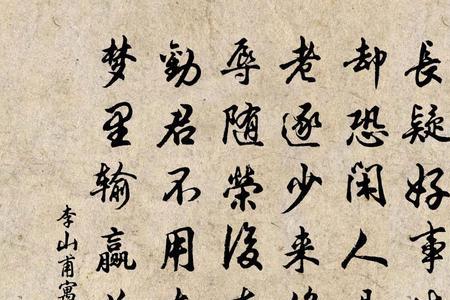 长疑好事
却恐闲人
老逐少来
辱随荣后
劝君不用
梦里输赢
李山甫寓